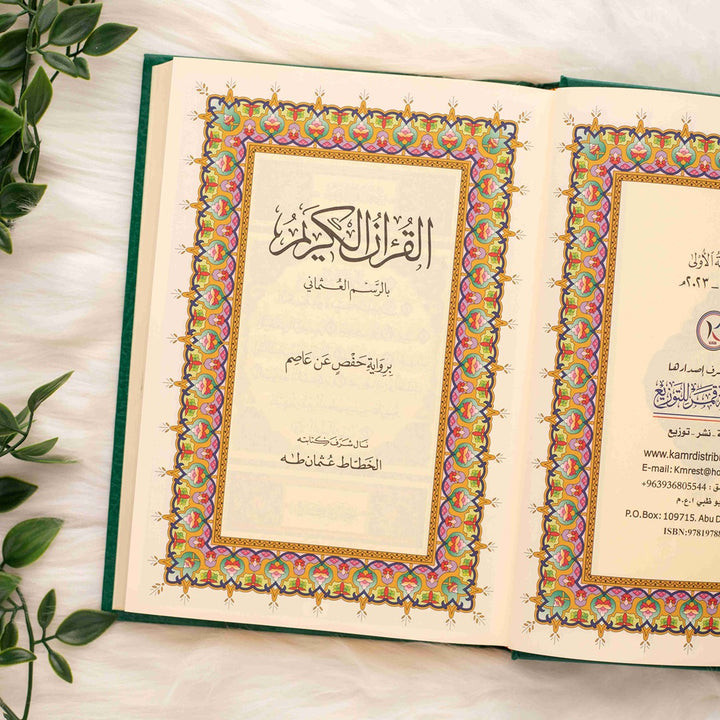 القُرآنُ الكَرِيمُ
بالرَّسمِ العُثماني
بِروَايَةِ حَفْصٍ عَن عَاصِم
نَالَ شَرَفَ كِتَابَتِهِ
الخَطَّاط عُثمَان طٰه
الأُولىٰ
- ٢٠٢٣م
إصدارها
للتوزيع
- نشر - توزيع
www.kamrdistribu
E-mail: Kmrest@ho
+963936805544 :
ا.ع.م
P.O.Box: 109715. Abu D
ISBN:97819788